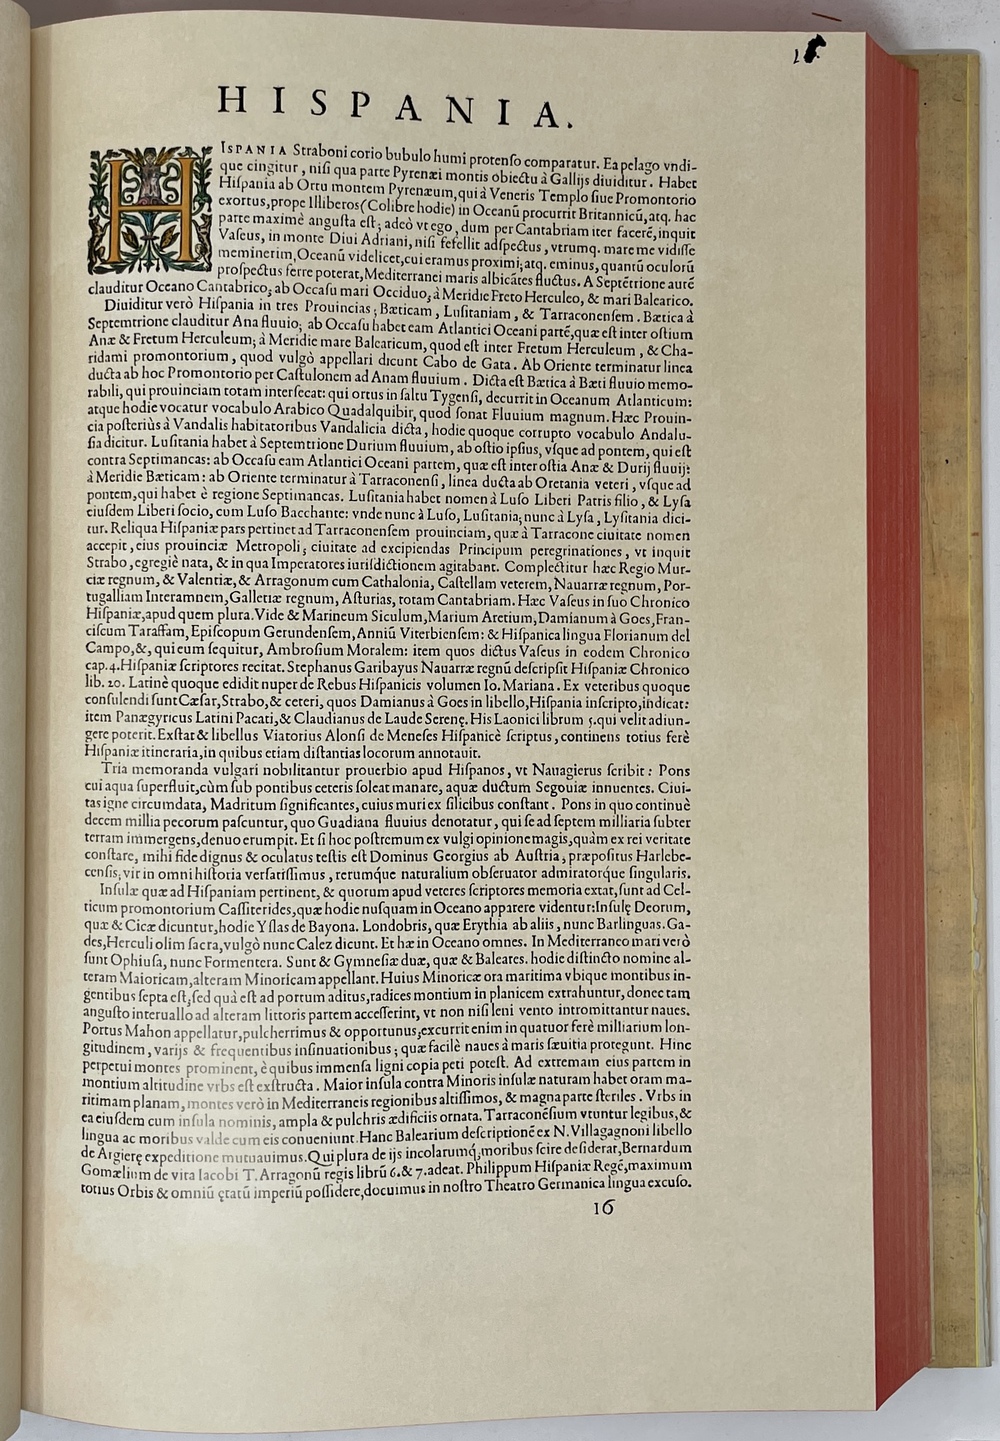 HISPANIA.
HISPANIA Straboni corio bubulo humi protenſo comparatur. Ea pelago vndi-
que cingitur, niſi qua parte Pyrenæi montis obiectu à Gallijs diuiditur. Habet
Hiſpania ab Ortu montem Pyrenæum, qui à Veneris Templo ſiue Promontorio
exortus, prope Illiberos (Colibre hodie) in Oceanū procurrit Britannicū, atq. hac
parte maximè anguſta eſt; adeò vt ego, dum per Cantabriam iter facerē, inquit
Vaſeus, in monte Diui Adriani, niſi fefellit adſpectus, vtrumq. mare me vidiſſe
meminerim, Oceanū videlicet, cui eramus proximi; atq. eminus, quantū oculorū
proſpectus ferre poterat, Mediterranei maris albicātes fluctus. A Septētrione autē
clauditur Oceano Cantabrico; ab Occaſu mari Occiduo; à Meridie Freto Herculeo, & mari Balearico.
Diuiditur verò Hiſpania in tres Prouincias; Bæticam, Luſitaniam, & Tarraconenſem. Bætica à
Septemtrione clauditur Ana fluuio; ab Occaſu habet eam Atlantici Oceani partē, quæ eſt inter oſtium
Anæ & Fretum Herculeum; à Meridie mare Balearicum, quod eſt inter Fretum Herculeum, & Cha-
ridami promontorium, quod vulgò appellari dicunt Cabo de Gata. Ab Oriente terminatur linea
ducta ab hoc Promontorio per Caſtulonem ad Anam fluuium. Dicta eſt Bætica à Bæti fluuio memo-
rabili, qui prouinciam totam interſecat: qui ortus in ſaltu Tygenſi, decurrit in Oceanum Atlanticum:
atque hodie vocatur vocabulo Arabico Quadalquibir, quod ſonat Fluuium magnum. Hæc Prouin-
cia poſteriùs à Vandalis habitatoribus Vandalicia dicta, hodie quoque corrupto vocabulo Andalu-
ſia dicitur. Luſitania habet à Septemtrione Durium fluuium, ab oſtio ipſius, vſque ad pontem, qui eſt
contra Septimancas: ab Occaſu eam Atlantici Oceani partem, quæ eſt inter oſtia Anæ & Durij fluuij:
à Meridie Bæticam: ab Oriente terminatur à Tarraconenſi, linea ducta ab Oretania veteri, vſque ad
pontem, qui habet è regione Septimancas. Luſitania habet nomen à Luſo Liberi Patris filio, & Lyſa
eiuſdem Liberi ſocio, cum Luſo Bacchante: vnde nunc à Luſo, Luſitania; nunc à Lyſa, Lyſitania dici-
tur. Reliqua Hiſpaniæ pars pertinet ad Tarraconenſem prouinciam, quæ à Tarracone ciuitate nomen
accepit, eius prouinciæ Metropoli; ciuitate ad excipiendas Principum peregrinationes, vt inquit
Strabo, egregiè nata, & in qua Imperatores iuriſdictionem agitabant. Complectitur hæc Regio Mur-
ciæ regnum, & Valentiæ, & Arragonum cum Cathalonia, Caſtellam veterem, Nauarræ regnum, Por-
tugalliam Interamnem, Galletiæ regnum, Aſturias, totam Cantabriam. Hæc Vaſeus in ſuo Chronico
Hiſpaniæ, apud quem plura. Vide & Marineum Siculum, Marium Aretium, Damianum à Goes, Fran-
ciſcum Taraffam, Epiſcopum Gerundenſem, Anniū Viterbienſem: & Hiſpanica lingua Florianum del
Campo, &, qui eum ſequitur, Ambroſium Moralem: item quos dictus Vaſeus in eodem Chronico
cap. 4. Hiſpaniæ ſcriptores recitat. Stephanus Garibayus Nauarræ regnū deſcripſit Hiſpaniæ Chronico
lib. 20. Latinè quoque edidit nuper de Rebus Hiſpanicis volumen Io. Mariana. Ex veteribus quoque
conſulendi ſunt Cæſar, Strabo, & ceteri, quos Damianus à Goes in libello, Hiſpania inſcripto, indicat:
item Panægyricus Latini Pacati, & Claudianus de Laude Serenę. His Laonici librum 5. qui velit adiun-
gere poterit. Exſtat & libellus Viatorius Alonſi de Meneſes Hiſpanicè ſcriptus, continens totius ferè
Hiſpaniæ itineraria, in quibus etiam diſtantias locorum annotauit.
Tria memoranda vulgari nobilitantur prouerbio apud Hiſpanos, vt Nauagierus ſcribit: Pons
cui aqua ſuperfluit, cùm ſub pontibus ceteris ſoleat manare, aquæ ductum Segouiæ innuentes. Ciui-
tas igne circumdata, Madritum ſignificantes, cuius muri ex ſilicibus conſtant. Pons in quo continuè
decem millia pecorum paſcuntur, quo Guadiana fluuius denotatur, qui ſe ad ſeptem milliaria ſubter
terram immergens, denuo erumpit. Et ſi hoc poſtremum ex vulgi opinione magis, quàm ex rei veritate
conſtare, mihi fide dignus & oculatus teſtis eſt Dominus Georgius ab Auſtria, præpoſitus Harlebe-
cenſis, vir in omni hiſtoria verſatiſſimus, rerumque naturalium obſeruator admiratorque ſingularis.
Inſulæ quæ ad Hiſpaniam pertinent, & quorum apud veteres ſcriptores memoria extat, ſunt ad Cel-
ticum promontorium Caſſiterides, quæ hodie nuſquam in Oceano apparere videntur: Inſulę Deorum,
quæ & Cicæ dicuntur, hodie Yſlas de Bayona. Londobris, quæ Erythia ab aliis, nunc Barlinguas. Ga-
des, Herculi olim ſacra, vulgò nunc Calez dicunt. Et hæ in Oceano omnes. In Mediterraneo mari verò
ſunt Ophiuſa, nunc Formentera. Sunt & Gymneſiæ duæ, quæ & Baleares. hodie diſtincto nomine al-
teram Maioricam, alteram Minoricam appellant. Huius Minoricæ ora maritima vbique montibus in-
gentibus ſepta eſt; ſed quà eſt ad portum aditus, radices montium in planicem extrahuntur, donec tam
anguſto interuallo ad alteram littoris partem acceſſerint, vt non niſi leni vento intromittantur naues.
Portus Mahon appellatur, pulcherrimus & opportunus; excurrit enim in quatuor ferè milliarium lon-
gitudinem, varijs & frequentibus inſinuationibus; quæ facilè naues à maris ſæuitia protegunt. Hinc
perpetui montes prominent, è quibus immenſa ligni copia peti poteſt. Ad extremam eius partem in
montium altitudine vrbs eſt exſtructa. Maior inſula contra Minoris inſulæ naturam habet oram ma-
ritimam planam, montes verò in Mediterraneis regionibus altiſſimos, & magna parte ſteriles. Vrbs in
ea eiuſdem cum inſula nominis, ampla & pulchris ædificiis ornata. Tarraconēſium vtuntur legibus, &
lingua ac moribus valde cum eis conueniunt. Hanc Balearium deſcriptionē ex N. Villagagnoni libello
de Argierę expeditione mutuauimus. Qui plura de ijs incolarumq́, moribus ſcire deſiderat, Bernardum
Gomælium de vita Iacobi T. Arragonū regis librū 6. & 7. adeat. Philippum Hiſpaniæ Regē, maximum
totius Orbis & omniū ętatū imperiū poſſidere, docuimus in noſtro Theatro Germanica lingua excuſo.
16